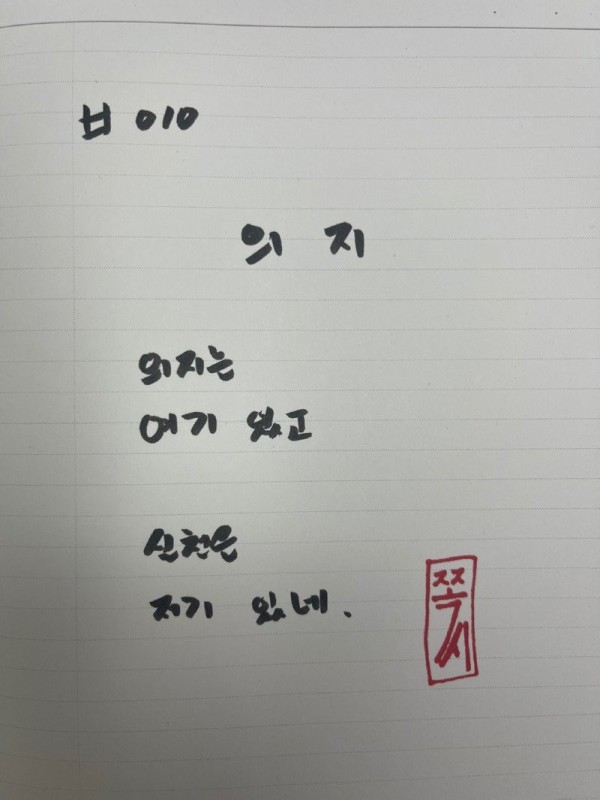 ㅂ 010
의 지
의지는
여기 있고
실천은
저기 있네.
쪽시